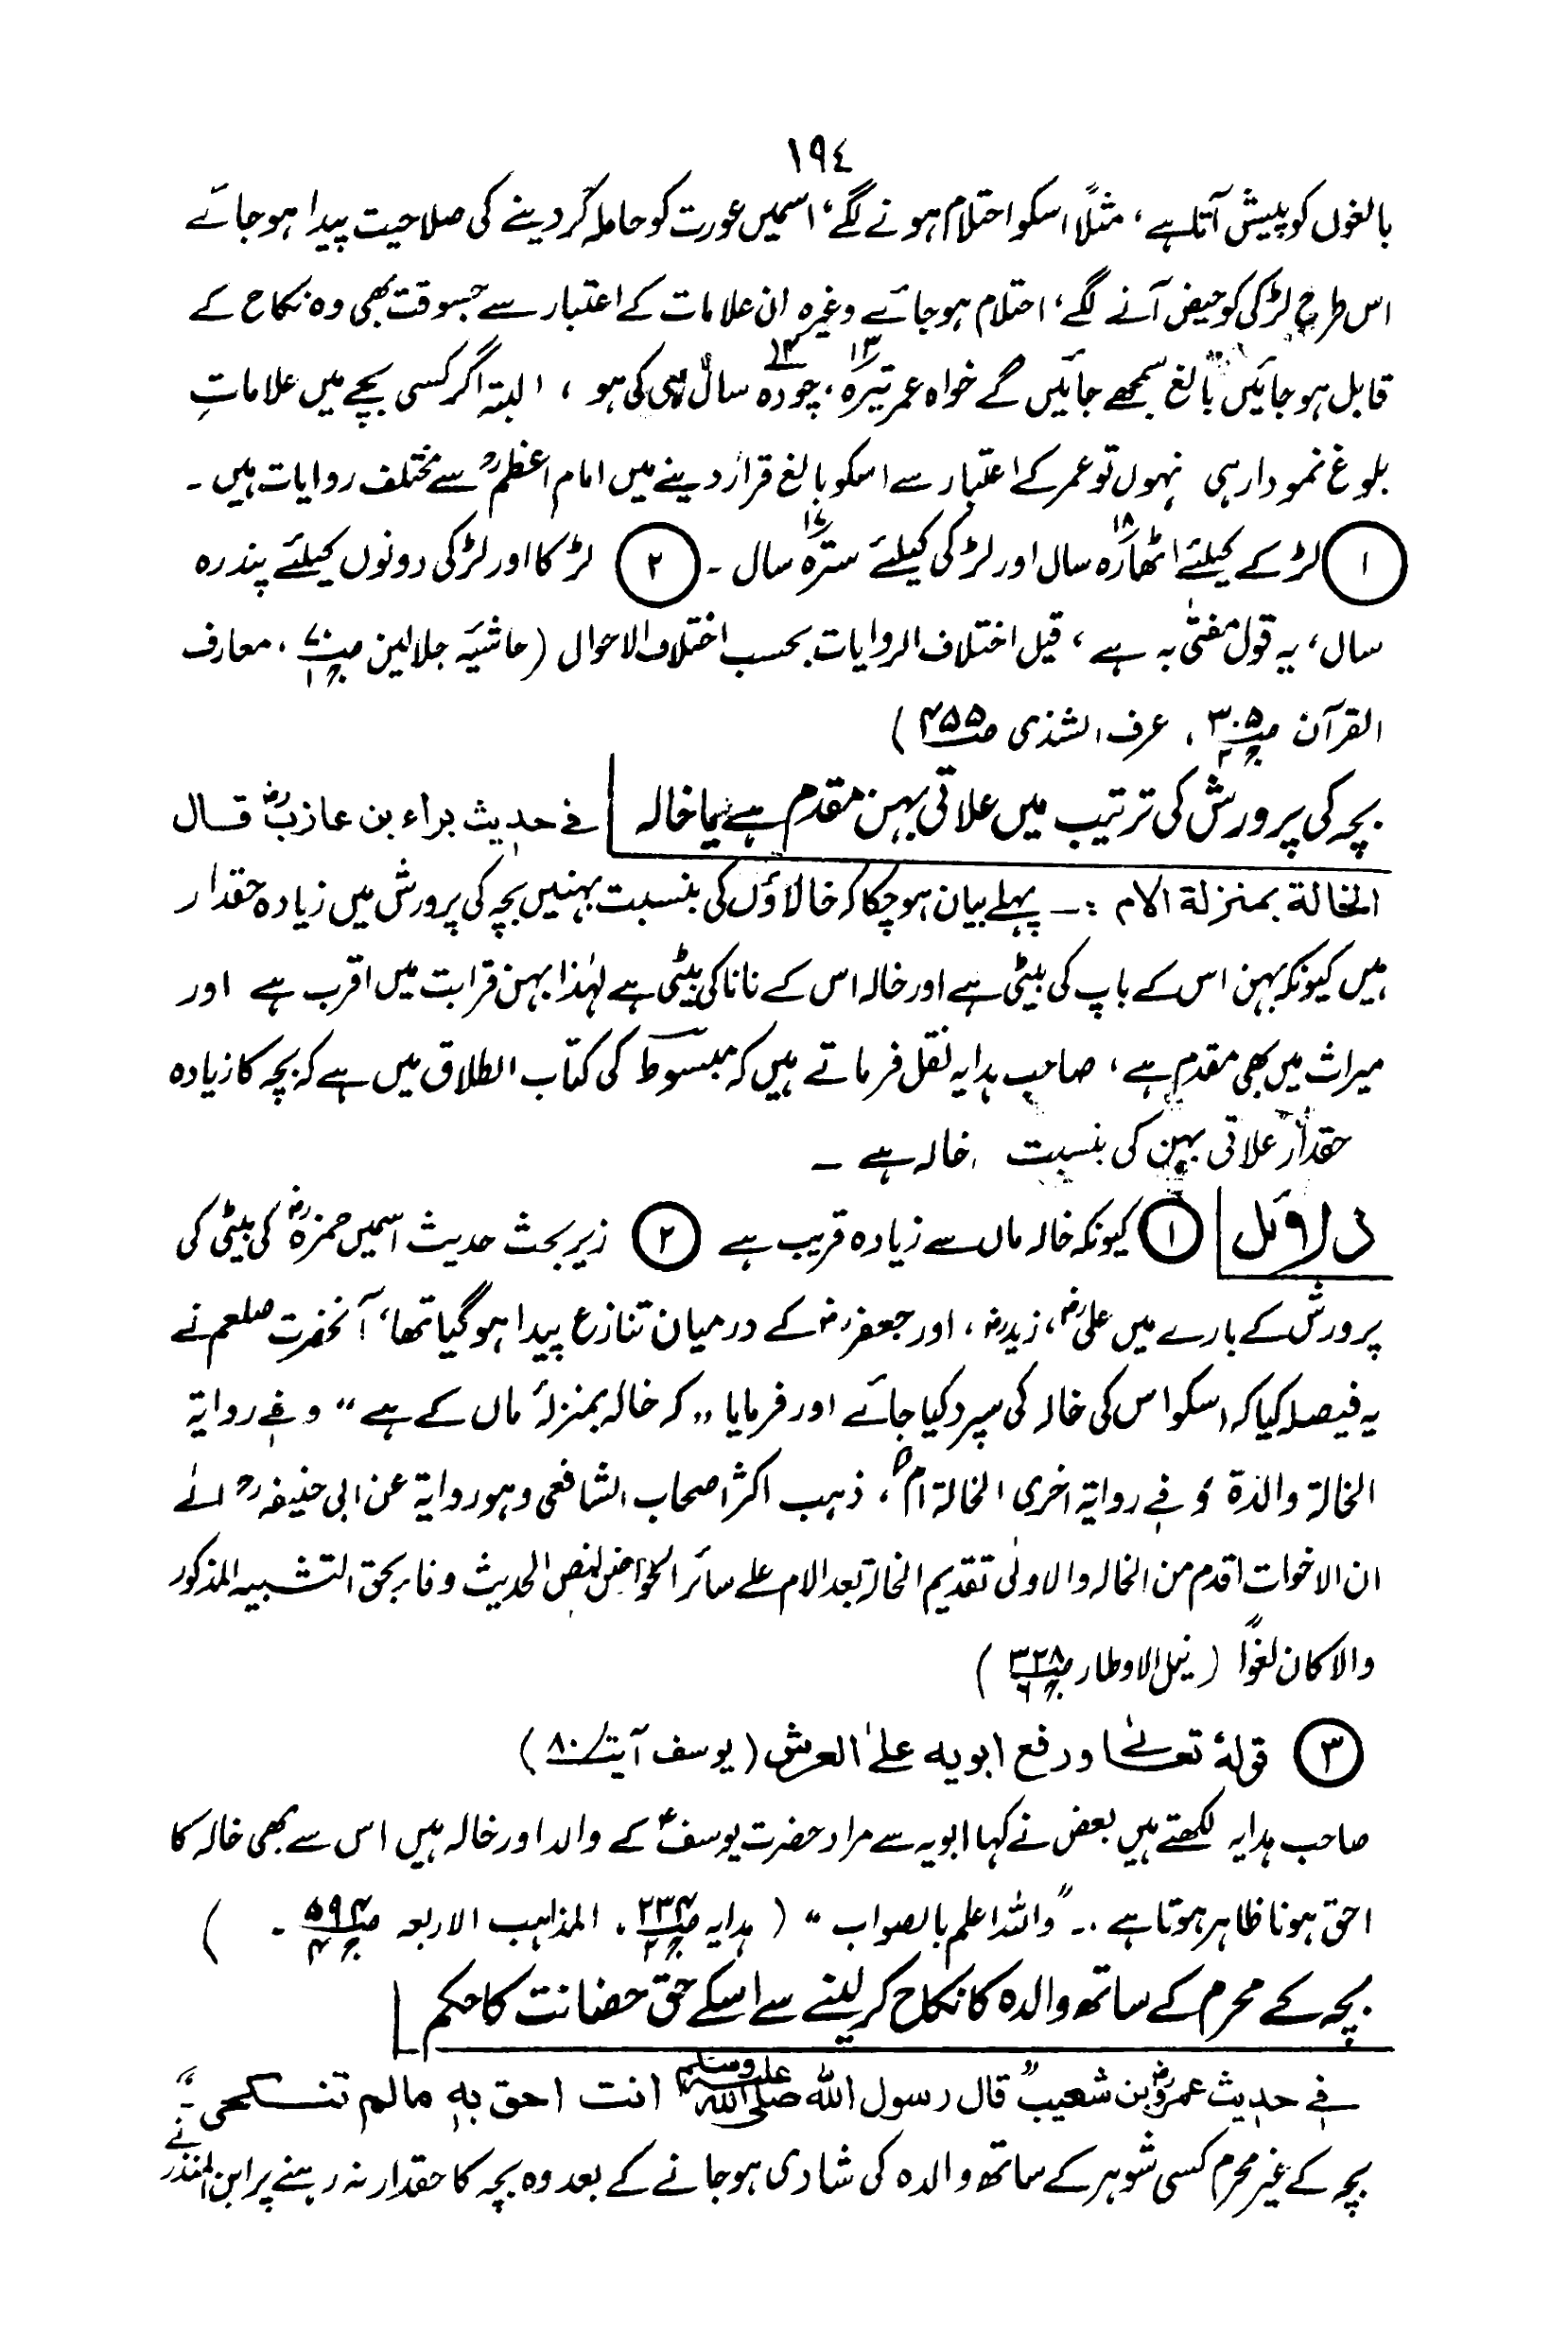 ١٩٤
بالغوں کو پیش آتا ہے، مثلاً اسکو احتلام ہونے لگے، اسمیں عورت کو حاملہ کر دینے کی صلاحیت پیدا ہو جائے
اس طرح لڑکی کو حیض آنے لگے، احتلام ہو جائے وغیرہ ان علامات کے اعتبار سے جسوقت بھی وہ نکاح کے
قابل ہو جائیں بالغ سمجھے جائیں گے خواہ عمر تیرہ ۱۳، چودہ ۱۴ سال ہی کی ہو، البتہ اگر کسی بچے میں علاماتِ
بلوغ نمودار ہی نہوں تو عمر کے اعتبار سے اسکو بالغ قرار دینے میں امام اعظمؒ سے مختلف روایات ہیں ۔
① لڑکے کیلئے اٹھارہ ۱۸ سال اور لڑکی کیلئے سترہ ۱۷ سال ۔ ② لڑکا اور لڑکی دونوں کیلئے پندرہ
سال، یہ قول مفتیٰ بہ ہے، قیل اختلاف الروایات بحسب اختلاف الاحوال (حاشیہ جلالین صـ، معارف
القرآن صـ۳۰۵ ج۲، عرف الشذی صـ۴۵۵)
بچہ کی پرورش کی ترتیب میں علاتی بہن مقدم ہے یا خالہ | فے حدیث براء بن عازبؓ قال
الخالة بمنزلة الام :ـ پہلے بیان ہو چکا کہ خالاؤں کی بنسبت بہنیں بچہ کی پرورش میں زیادہ حقدار
ہیں کیونکہ بہن اس کے باپ کی بیٹی ہے اور خالہ اس کے نانا کی بیٹی ہے لہٰذا بہن قرابت میں اقرب ہے اور
میراث میں بھی مقدم ہے، صاحب ہدایہ نقل فرماتے ہیں کہ مبسوط کی کتاب الطلاق میں ہے کہ بچہ کا زیادہ
حقدار علاتی بہن کی بنسبت خالہ ہے ۔
دلائل | ① کیونکہ خالہ ماں سے زیادہ قریب ہے ② زیر بحث حدیث اسمیں حمزہؓ کی بیٹی کی
پرورش کے بارے میں علیؓ، زیدؓ، اور جعفرؓ کے درمیان تنازع پیدا ہو گیا تھا، آنحضرت صلعم نے
یہ فیصلہ کیا کہ اسکو اس کی خالہ کی سپرد کیا جائے اور فرمایا ,, کہ خالہ بمنزلۂ ماں کے ہے ،، و فے روایة
الخالة والدة و فے روایة اخری الخالة ام، ذہب اکثر اصحاب الشافعی وہو روایة عن ابی حنیفہؒ الے
ان الاخوات اقدم من الخالہ والاولٰی تقدیم الخالة بعد الام علے سائر الحواضن لنص الحدیث وفاء بحق التشبیہ المذکور
والا کان لغواً (نیل الاوطار صـ۳۲۸ ج۶)
③ قولہٗ تعالےٰ ورفع ابویه علےٰ العرش (یوسف آیت/۸۰)
صاحب ہدایہ لکھتے ہیں بعض نے کہا ابویہ سے مراد حضرت یوسفؑ کے والد اور خالہ ہیں اس سے بھی خالہ کا
احق ہونا ظاہر ہوتا ہے ۔ ,, واللہ اعلم بالصواب ،، (ہدایہ صـ۴۳۴ ج۲، المذاہب الاربعہ صـ۵۹۴ ج۴ ۔)
بچہ کے محرم کے ساتھ والدہ کا نکاح کر لینے سے اسکے حق حضانت کا حکم |
فے حدیث عمروؓ بن شعیب ,, قال رسول الله صلى الله عليه وسلم انت احق به مالم تنكحى ،،
بچہ کے غیر محرم کسی شوہر کے ساتھ والدہ کی شادی ہو جانے کے بعد وہ بچہ کا حقدار نہ رہنے پر ابن المنذر نے